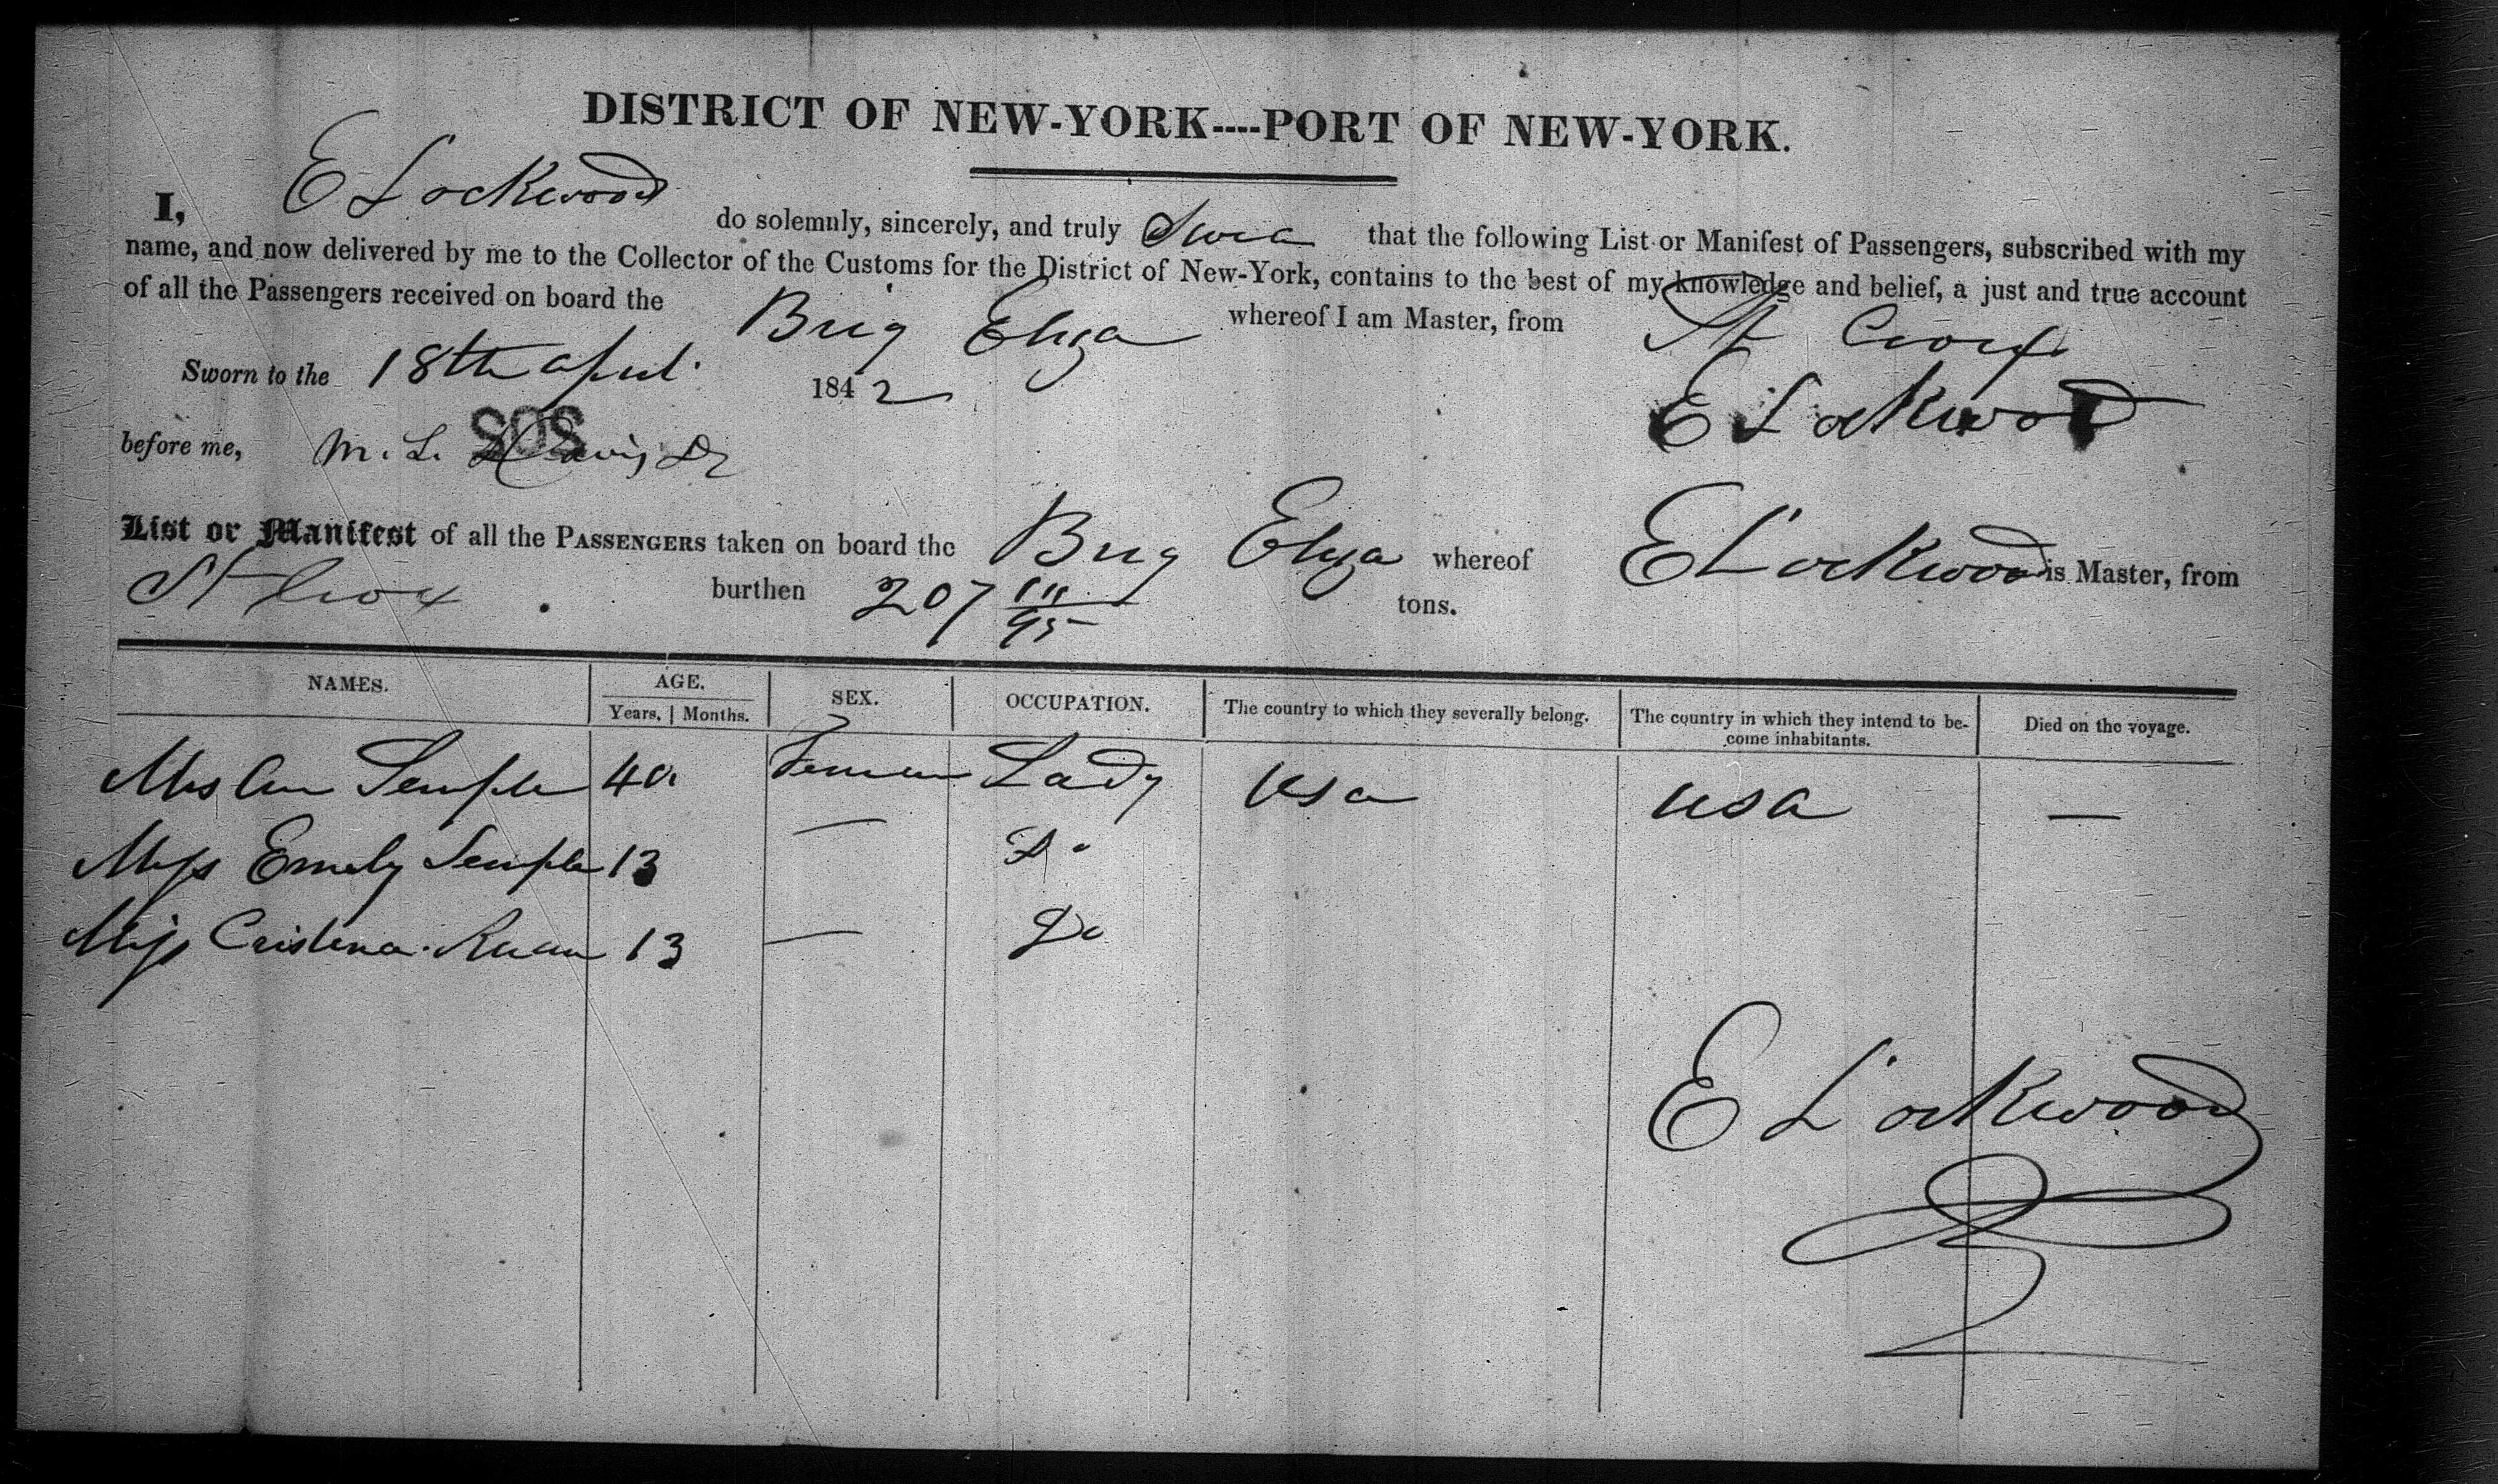 DISTRICT OF NEW-YORK----PORT OF NEW-YORK.
I, E Lockwood do solemnly, sincerely, and truly that the following List or Manifest of Passengers, subscribed with my
name, and now delivered by me to the Collector of the Customs for the District of New-York, contains to the best of my knowledge and belief, a just and true account
of all the Passengers received on board the Brig Eliza whereof I am Master, from St Croix
Sworn to the 18th april 1842 E Lockwood
before me, M. L. Davis
SOS
List or Manifest of all the PASSENGERS taken on board the Brig Eliza whereof E Lockwood is Master, from
St Croix burthen 207 tons.
NAMES. AGE. SEX. OCCUPATION. The country to which they severally belong. The country in which they intend to be-
come inhabitants. Died on the voyage.
Years. Months.
Mrs Ann Semple 40 Lady usa usa —
Miss Emely Semple 13 — Do
Miss Cristena Ruan 13 — Do
E Lockwood